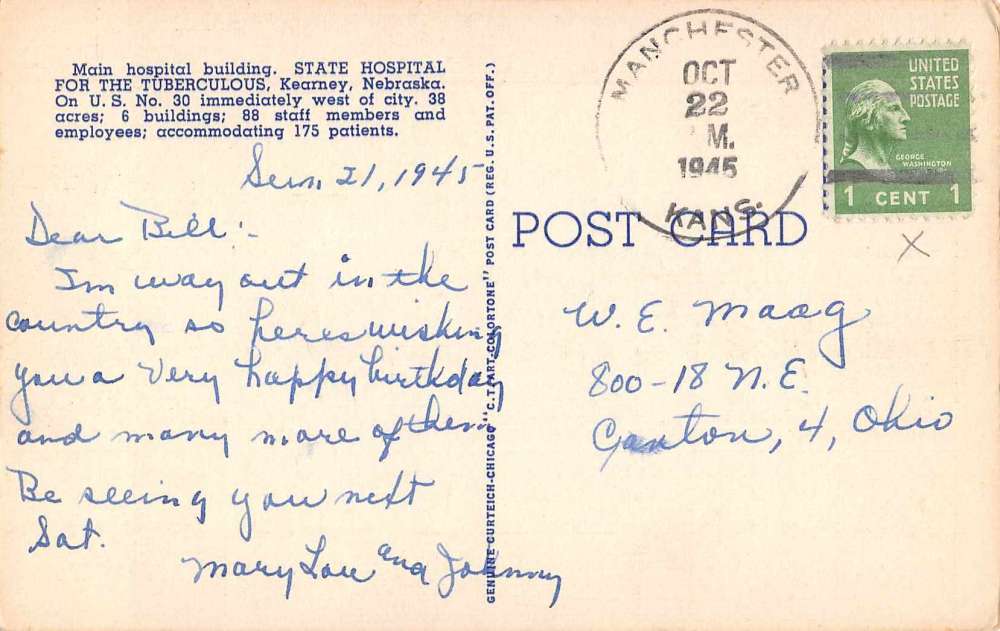 Main hospital building. STATE HOSPITAL
FOR THE TUBERCULOUS, Kearney, Nebraska.
On U. S. No. 30 immediately west of city. 38
acres; 6 buildings; 88 staff members and
employees; accommodating 175 patients.
Sun, 21, 1945
Dear Bill:-
Im way out in the
country so heres wishing
you a very happy birthday
and many more of them.
Be seeing you next
Sat.
Mary Lou and Johnny
GENUINE CURTEICH-CHICAGO "C.T. ART-COLORTONE" POST CARD (REG. U.S. PAT. OFF.)
POST CARD
MANCHESTER
OCT
22
M.
1945
KANS.
UNITED
STATES
POSTAGE
GEORGE
WASHINGTON
1 CENT 1
X
W. E. Maag
800-18 N.E.
Canton, 4, Ohio